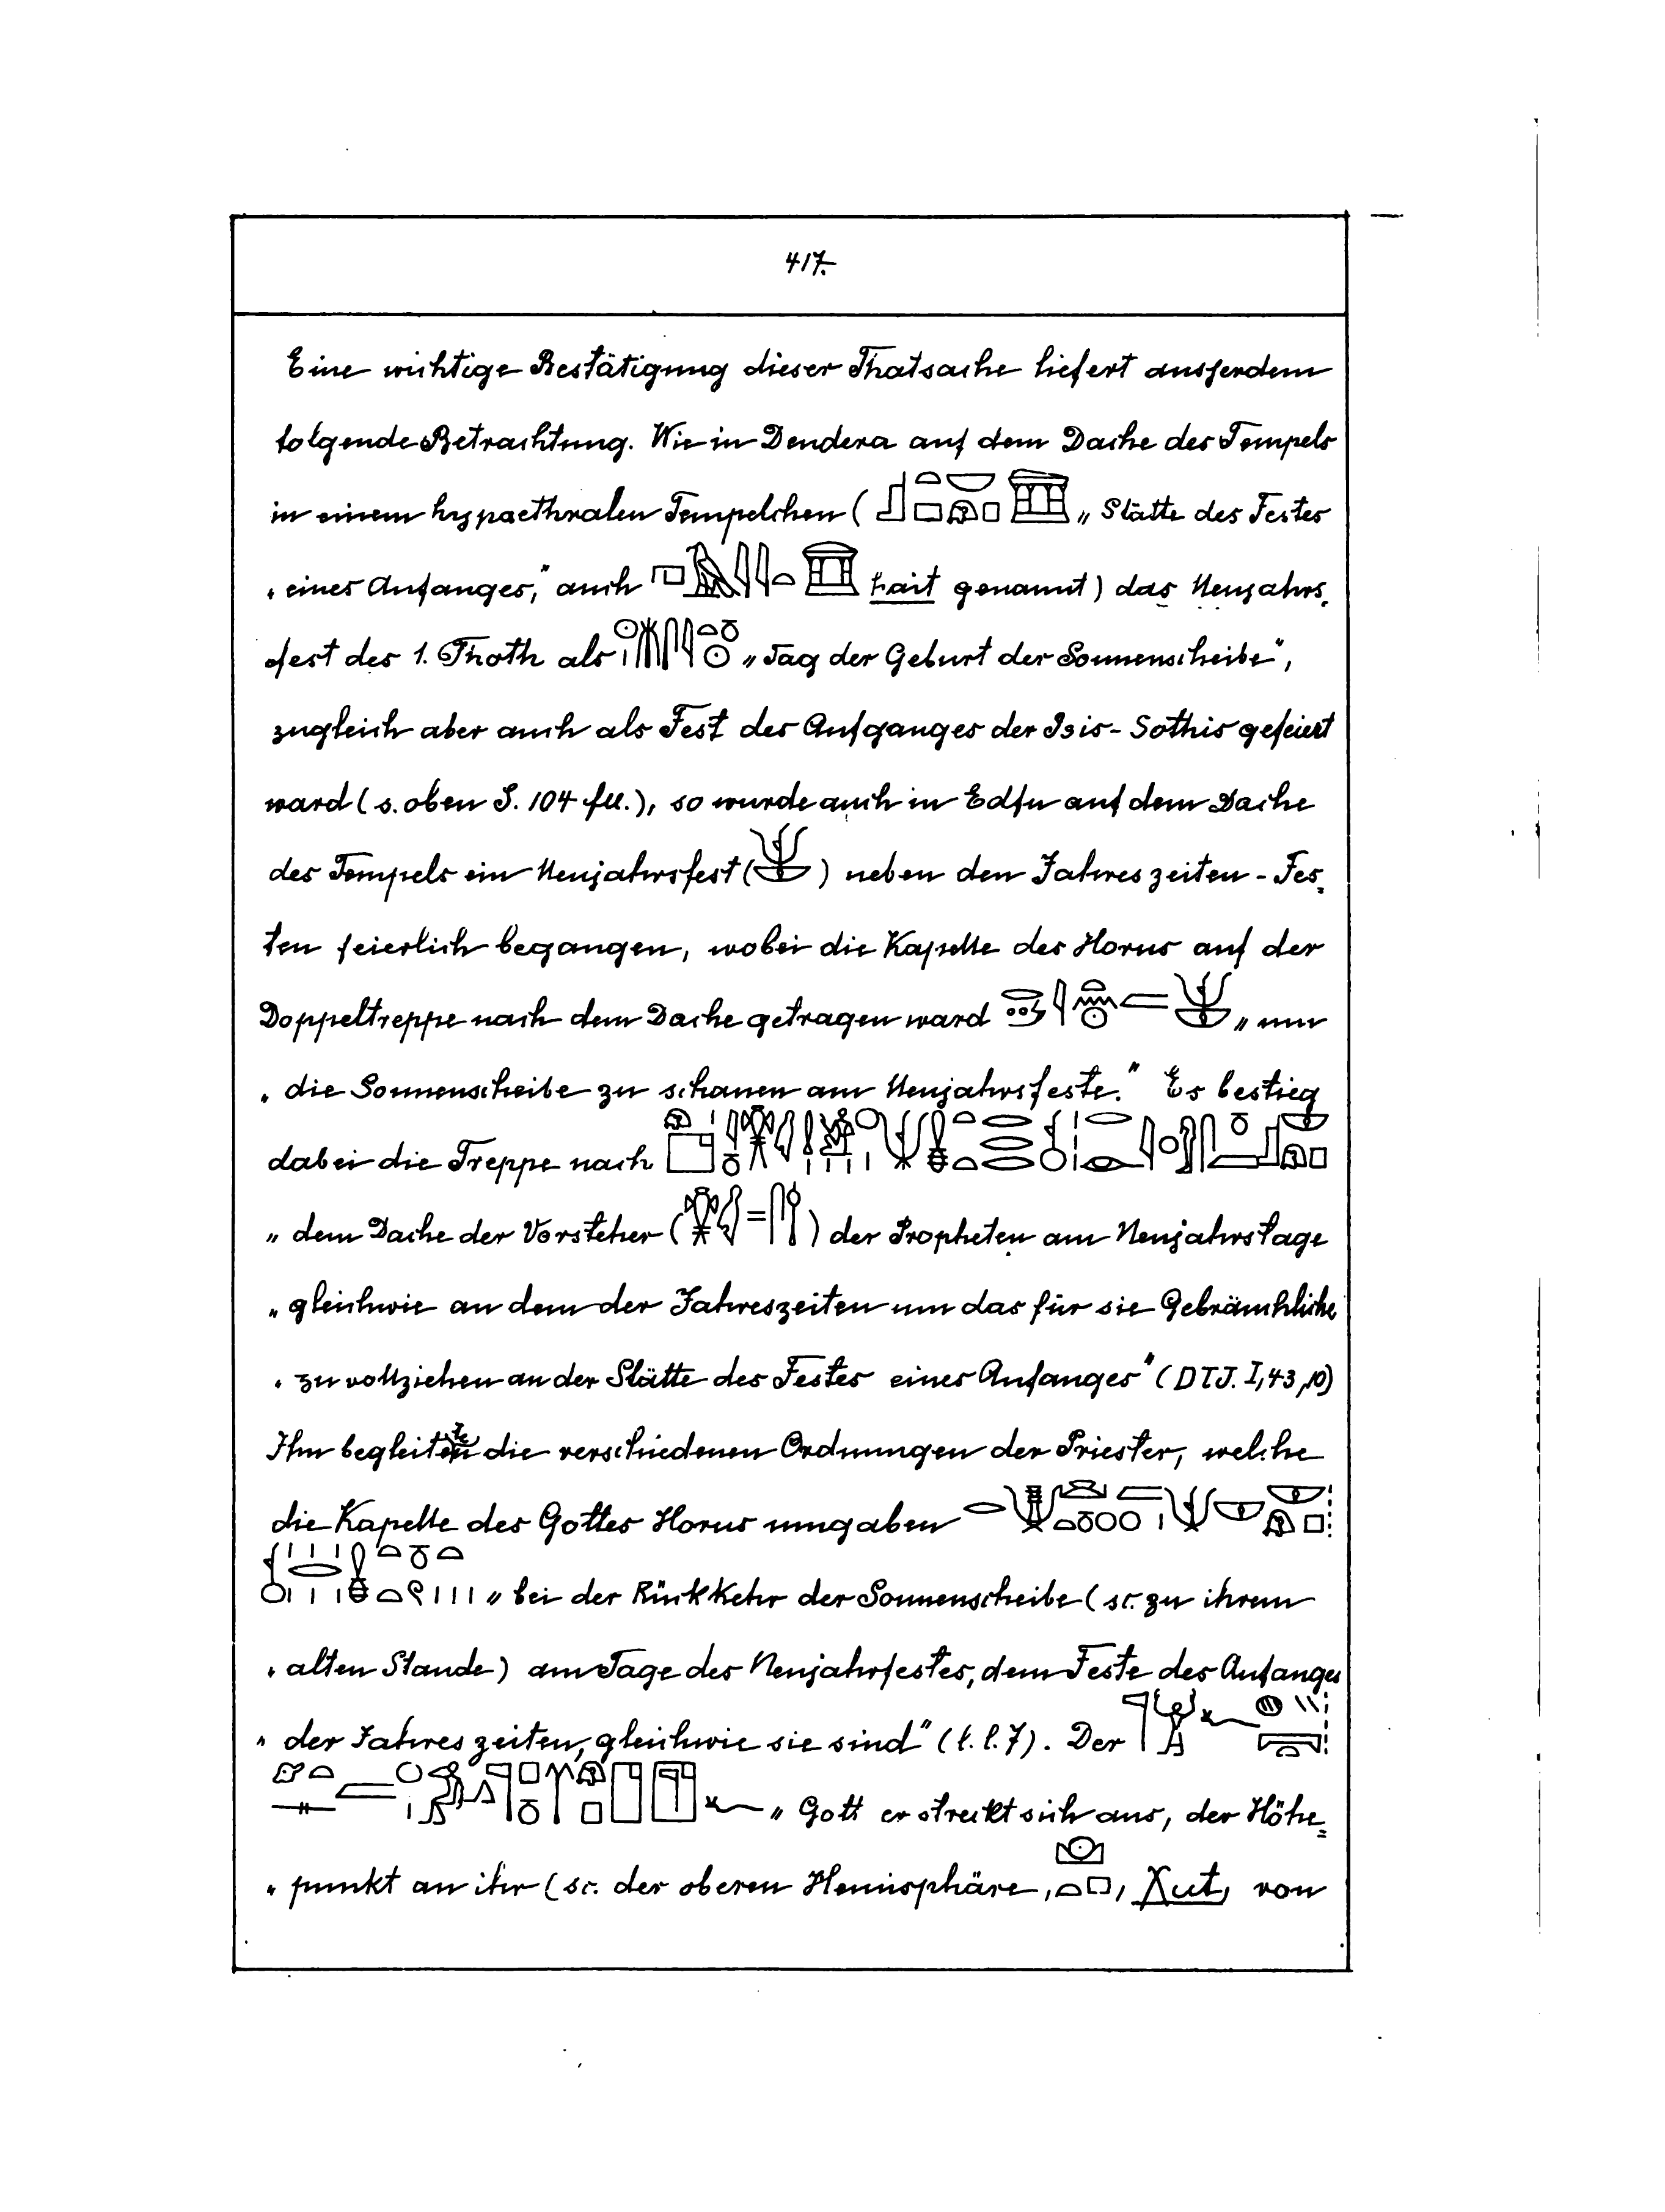 417.
Eine wichtige Bestätigung dieser Thatsache liefert ausserdem
folgende Betrachtung. Wie in Dendera auf dem Dache des Tempels
in einem hypaethralen Tempelchen ( „Stätte des Festes
„eines Anfanges," auch hait genannt) das Neujahrs-
fest des 1. Thoth als „Tag der Geburt der Sonnenscheibe",
zugleich aber auch als Fest des Aufganges der Isis-Sothis gefeiert
ward (s. oben S. 104 fll.), so wurde auch in Edfu auf dem Dache
des Tempels ein Neujahrsfest ( ) neben den Jahreszeiten-Fes-
ten feierlich begangen, wobei die Kapelle des Horus auf der
Doppeltreppe nach dem Dache getragen ward „um
„die Sonnenscheibe zu schauen am Neujahrsfeste." Es bestieg
dabei die Treppe nach
„dem Dache der Vorsteher ( = ) der Propheten am Neujahrstage
„gleichwie an dem der Jahreszeiten um das für sie Gebräuchliche
„zu vollziehen an der Stätte des Festes eines Anfanges" (DTJ. I, 43, 10)
Ihn begleiteten die verschiedenen Ordnungen der Priester, welche
die Kapelle des Gottes Horus umgaben
„bei der Rückkehr der Sonnenscheibe (sc. zu ihrem
„alten Stande) am Tage des Neujahrfestes, dem Feste des Anfanges
„der Jahreszeiten, gleichwie sie sind" (l. l. 7). Der
„Gott er streckt sich aus, der Höhe-
„punkt an ihr (sc. der oberen Hemisphäre, , χut, von